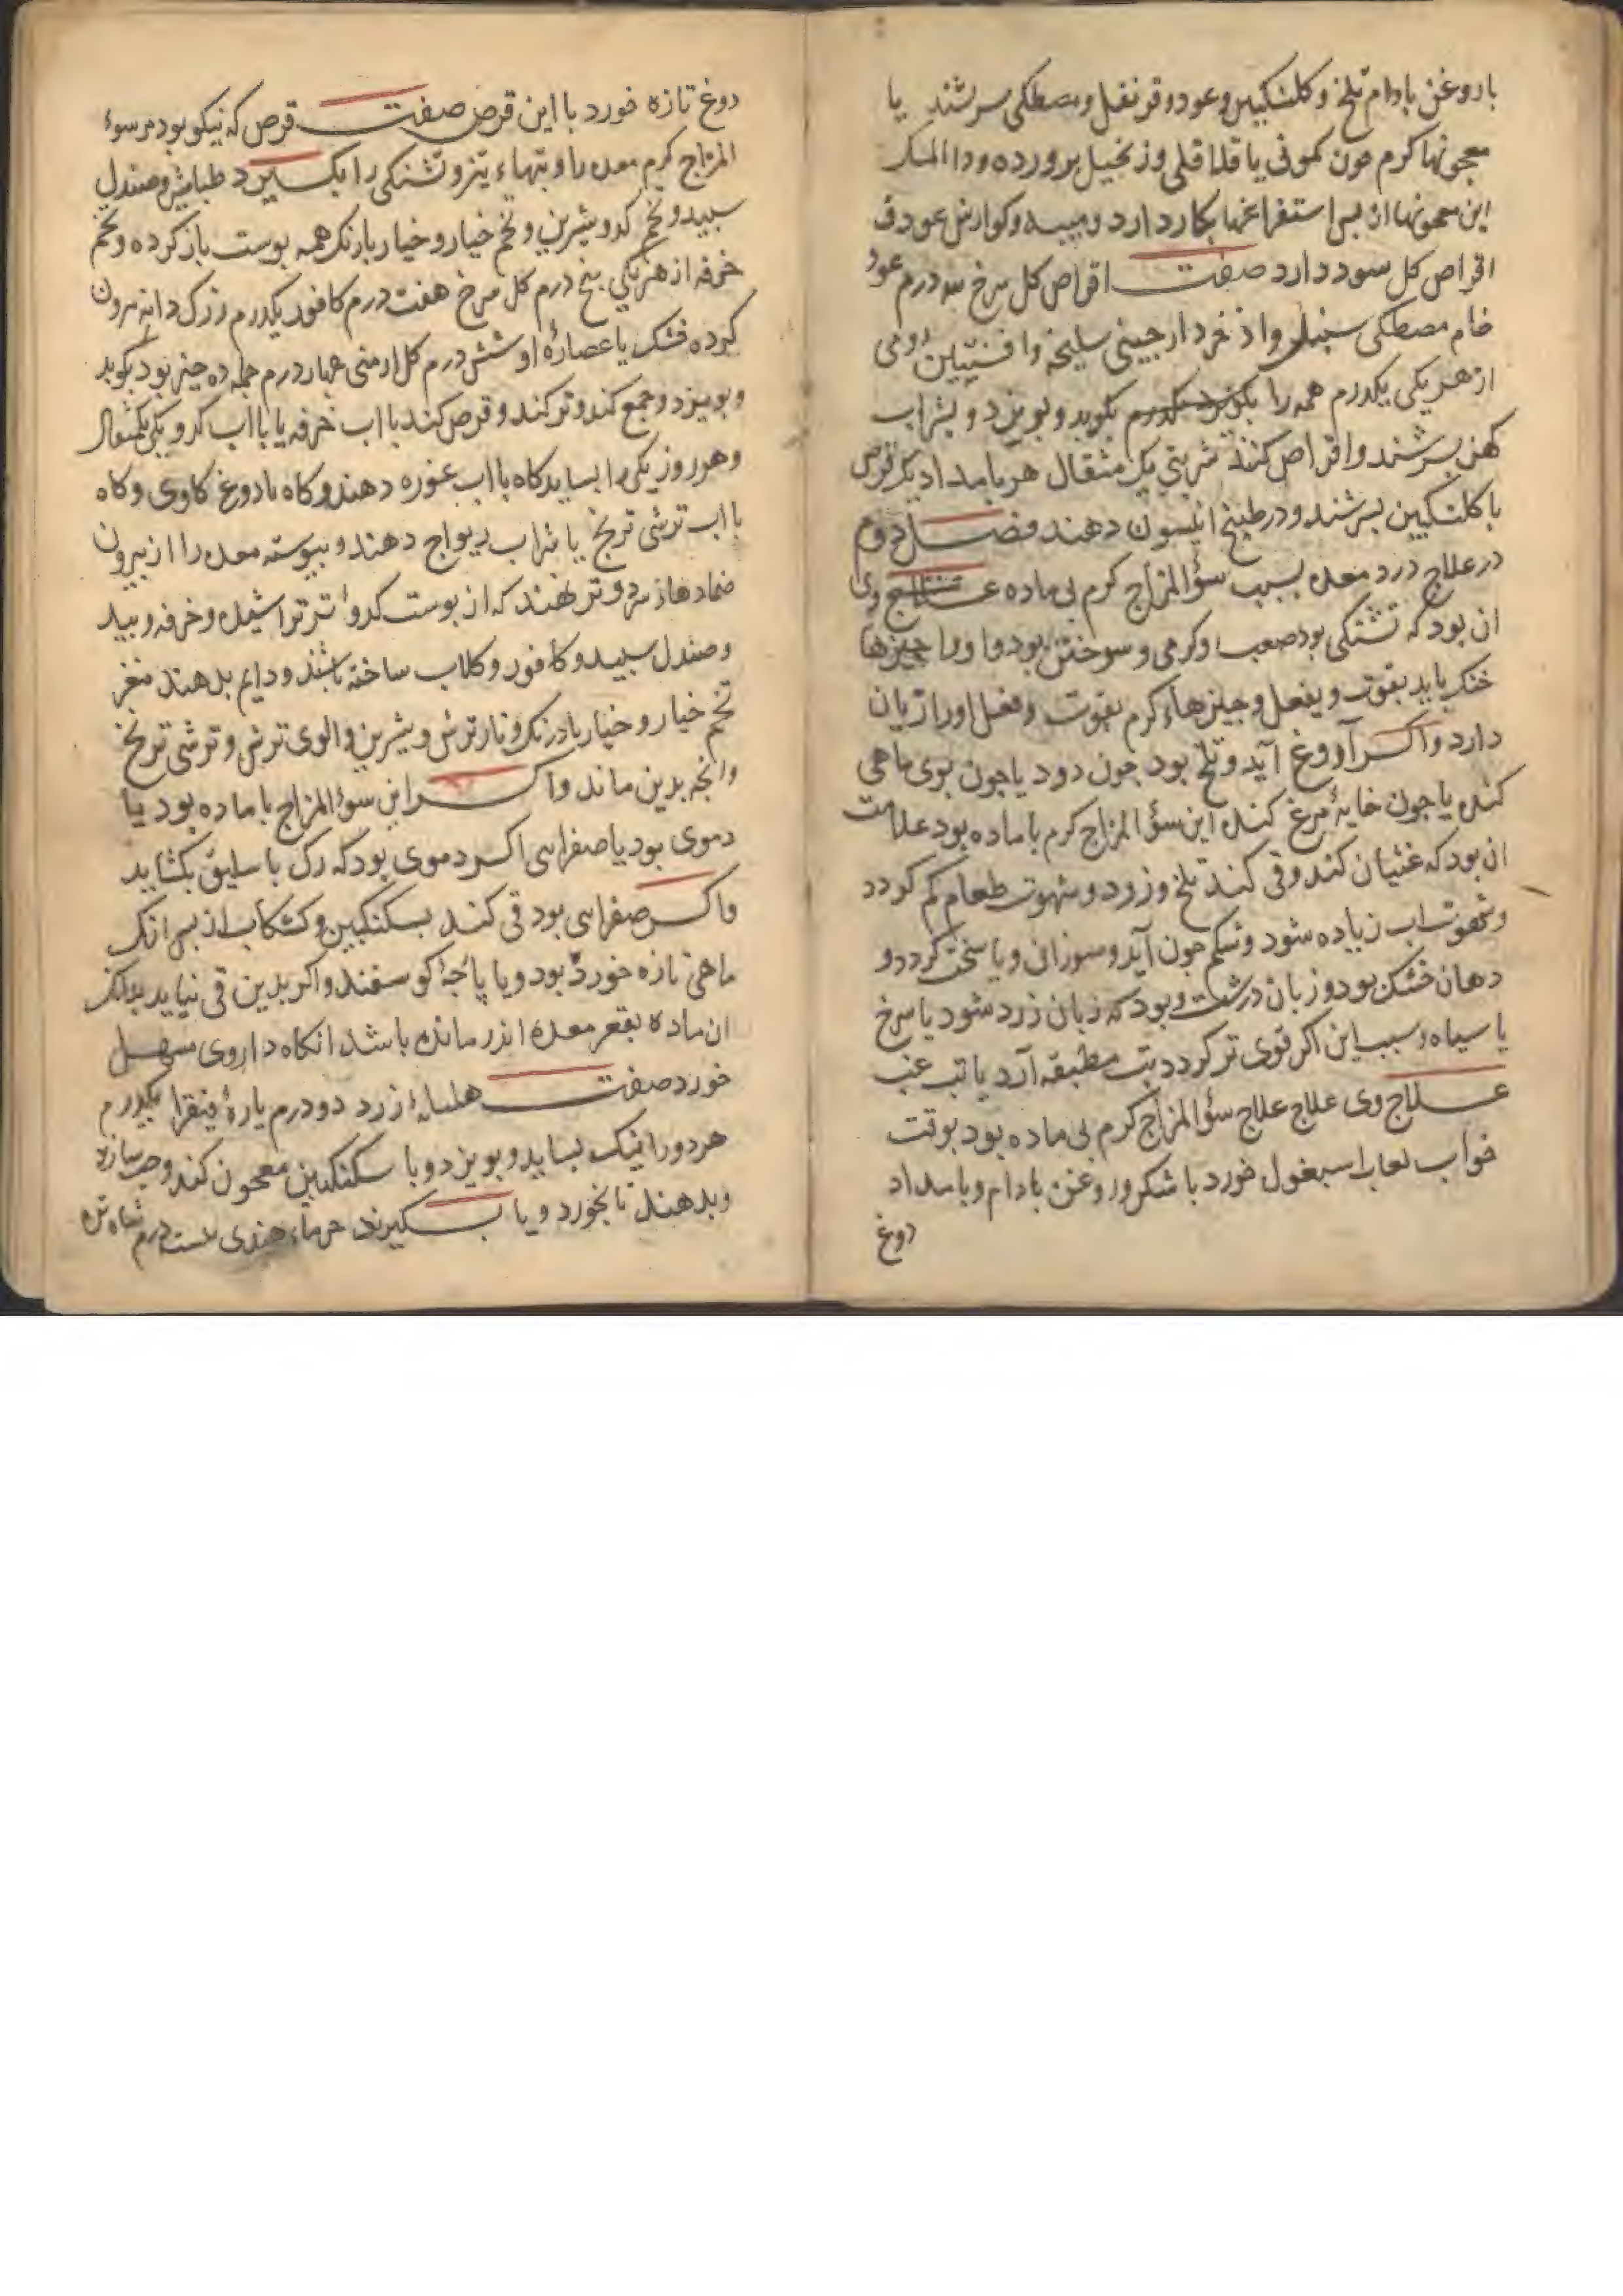 با روغن بادام تلخ و کلنکبین وعود و قرنفل و مصطکی سرشند یا
معجونها کرم جون کمونی یا قلاقلی و زنجبیل برورده و دواالمسک
این معجونها از بس استفراغها بکار دارد و میبه و کوارش عود و
اقراص کل سود دارد صفت اقراص کل سرخ سه درم عود
خام مصطکی سنبل و اذخر دارجینی سلیخه وا فسنتین رومی
از هر یکی یکدرم همه را بکوبد و بویزد و بشراب
کهن بسرشند و اقراص کنند شربتی یک مثقال هر بامداد یک قرص
با کلنکبین بسرشند و در طبیخ انیسون دهند فصل دوم
در علاج درد معده بسبب سؤالمزاج کرم بی ماده علاج وی
ان بود که تشنکی بود صعب وکرمی و سوختن بود و او را جیزها
خنک باید بقوت و بفعل و جیزهاء کرم بقوت و فعل او را زیان
دارد و اکر آروغ آید و تلخ بود جون دود یا جون بوی ماهی
کنده یا جون خایهٔ مرغ کنده این سؤالمزاج کرم با ماده بود علامت
ان بود که غثیان کند و قی کند تلخ و زرد و شهوت طعام کم کردد
و شهوت اب زیاده شود و شکم جون آید و سوزانی و یا سخت کردد و
دهان خشک بود و زبان درشت و بود که زبان زرد شود یا سرخ
یا سیاه و سبب این اکر قوی تر کردد تب مطبقه آرد یا تب غب
علاج وی علاج علاج سؤالمزاج کرم بی ماده بود بوقت
خواب لعاب اسبغول خورد با شکر و روغن بادام و بامداد
دوغ
دوغ تازه خورد با این قرص صفت قرص که نیکو بود مر سوء
المزاج کرم معده را و تبهاء تیز و تشنکی را بکیرد طباشیر و صندل
سبید و تخم کدو شیرین و تخم خیار و خیار بادرنک همه بوست باز کرده و تخم
خرفه از هر یکی بنج درم کل سرخ هفت درم کافور یکدرم زرک دانه بیرون
کرده خشک یا عصارهٔ او شش درم کل ارمنی جهار درم جمله ده جیز بود بکوبد
و بویزد و جمع کند و تر کند و قرص کند با اب خرفه یا با اب کدو یکی یکمثقال
و هر روز یکی را بساید کاه با اب غوره دهند و کاه با دوغ کاوی و کاه
با اب ترشی ترنج یا شراب ریواج دهند و بیوسته معده را از بیرون
ضمادهاذ سرد و تر نهند که از بوست کدوا تر تراشیده و خرفه و بید
و صندل سبید و کافور و کلاب ساخته باشند و دایم بدهند مغز
تخم خیار و خیار بادرنک و نار ترش و شیرین و الوی ترش و ترشی ترنج
وانجه بدین ماند و اکر این سوءالمزاج با ماده بود یا
دموی بود یا صفراسی اکر دموی بود که رک باسلیق بکشاید
و اکر صفراسی بود قی کند بسکنکبین و کشکاب از بس انک
ماهی تازه خورده بود و یا پاجهٔ کوسفند و اکر بدین قی نیاید بدانک
ان ماده بقعر معده اندر مانده باشد انکاه داروی مسهل
خورد صفت هلیلهٔ زرد دو درم یارهٔ فیقرا یکدرم
هر دو را نیک بساید و بویزد و با سکنکبین معجون کند و حب سازد
و بدهند تا بخورد و یا بکیرند خرماء هندی بیست درم شاه تره